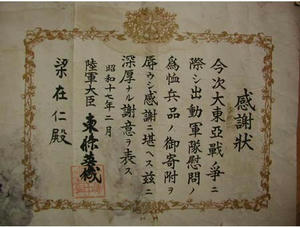 感謝狀
今次大東亞戰爭ニ
際シ出動軍隊慰問ノ
爲恤兵品ノ御寄附ヲ
辱ウシ感謝ニ堪ヘス茲ニ
深厚ナル謝意ヲ表ス
昭和十七年二月
陸軍大臣 東條英機
梁在仁殿